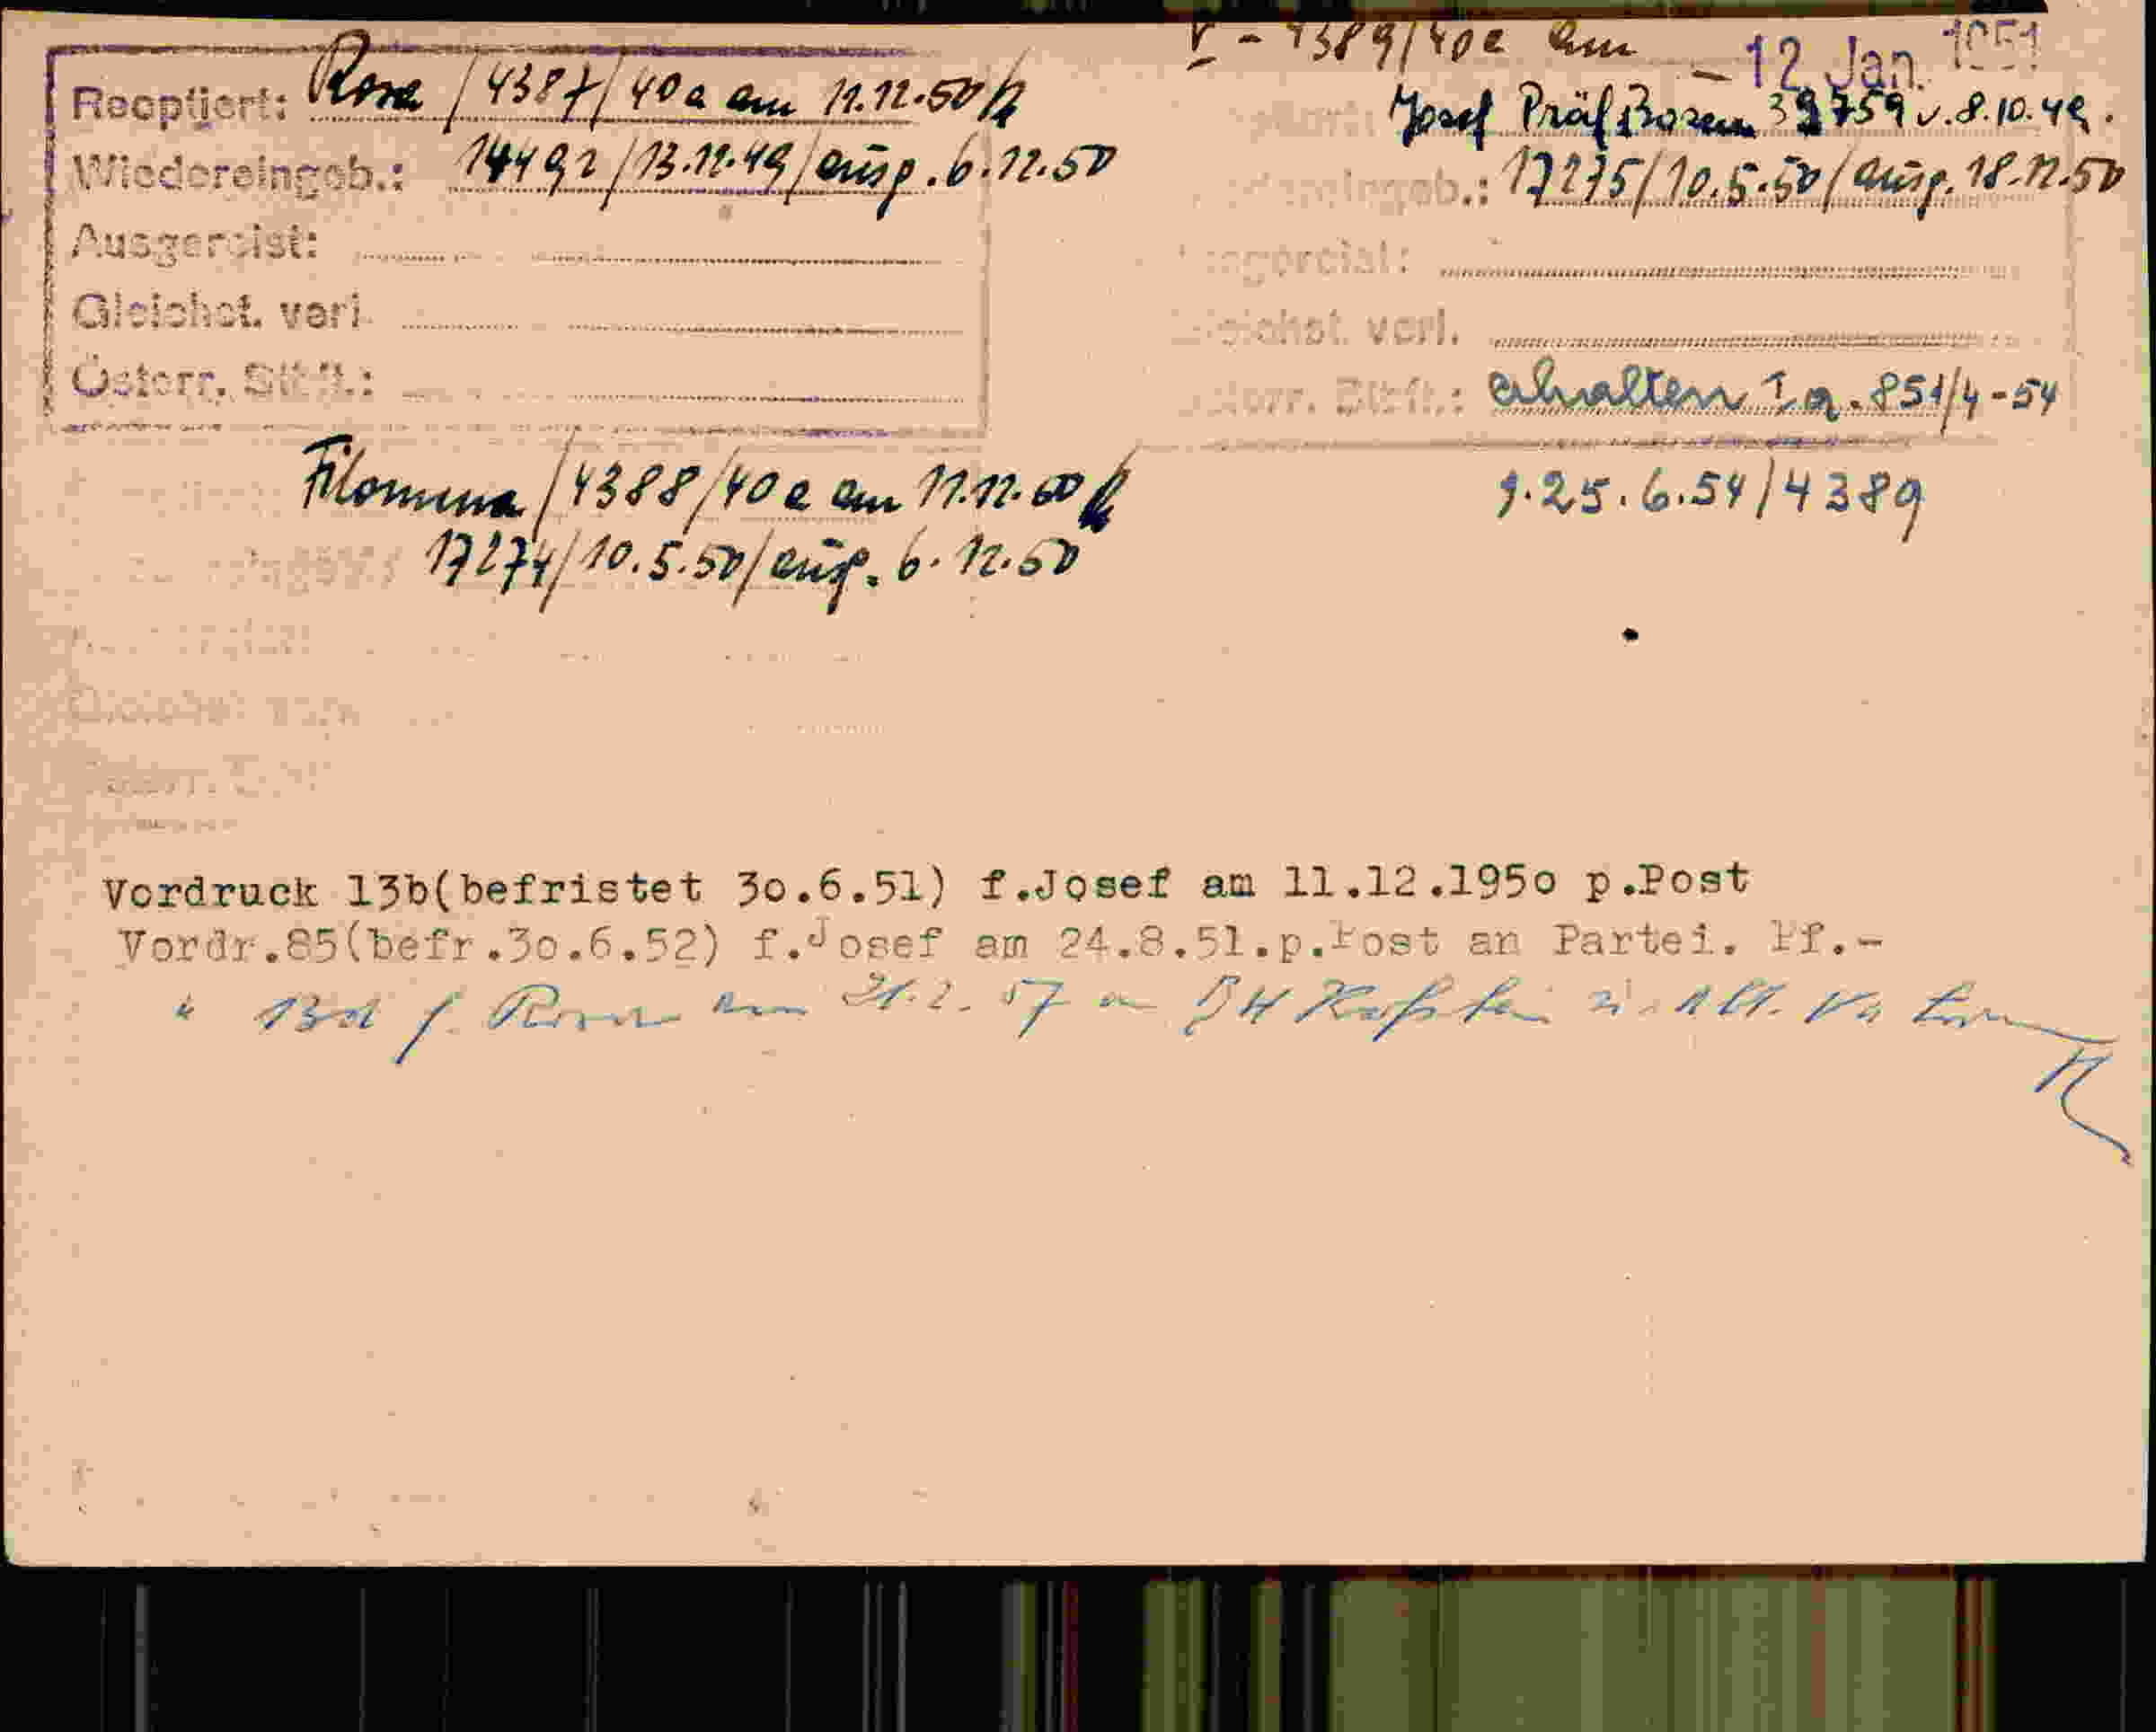 Reoptiert: Rosa / 4387 / 40a am 11.12.50
Wiedereingeb.: 14492 / 13.12.49 / ausg. 6.12.50
Ausgereist:
Gleichst. verl.
Österr. Stbft.:
Filomena / 4388 / 40a am 11.12.50
17274 / 10.5.50 / ausg. 6.12.50
V - 4389/40a am - 12. Jan. 1951
Josef Präf Bozen 39759 v. 8.10.49.
17275 / 10.5.50 / ausg. 18.12.50
Gleichst. verl.
Österr. Stbft.: erhalten Ia. 851/4-54
25.6.54 / 4389
Vordruck 13b(befristet 3o.6.51) f.Josef am 11.12.195o p.Post
Vordr.85(befr.3o.6.52) f.Josef am 24.8.51.p.Post an Partei. Pf.-
" 13d f. Rosa am 21.2.57 BH Kufstein